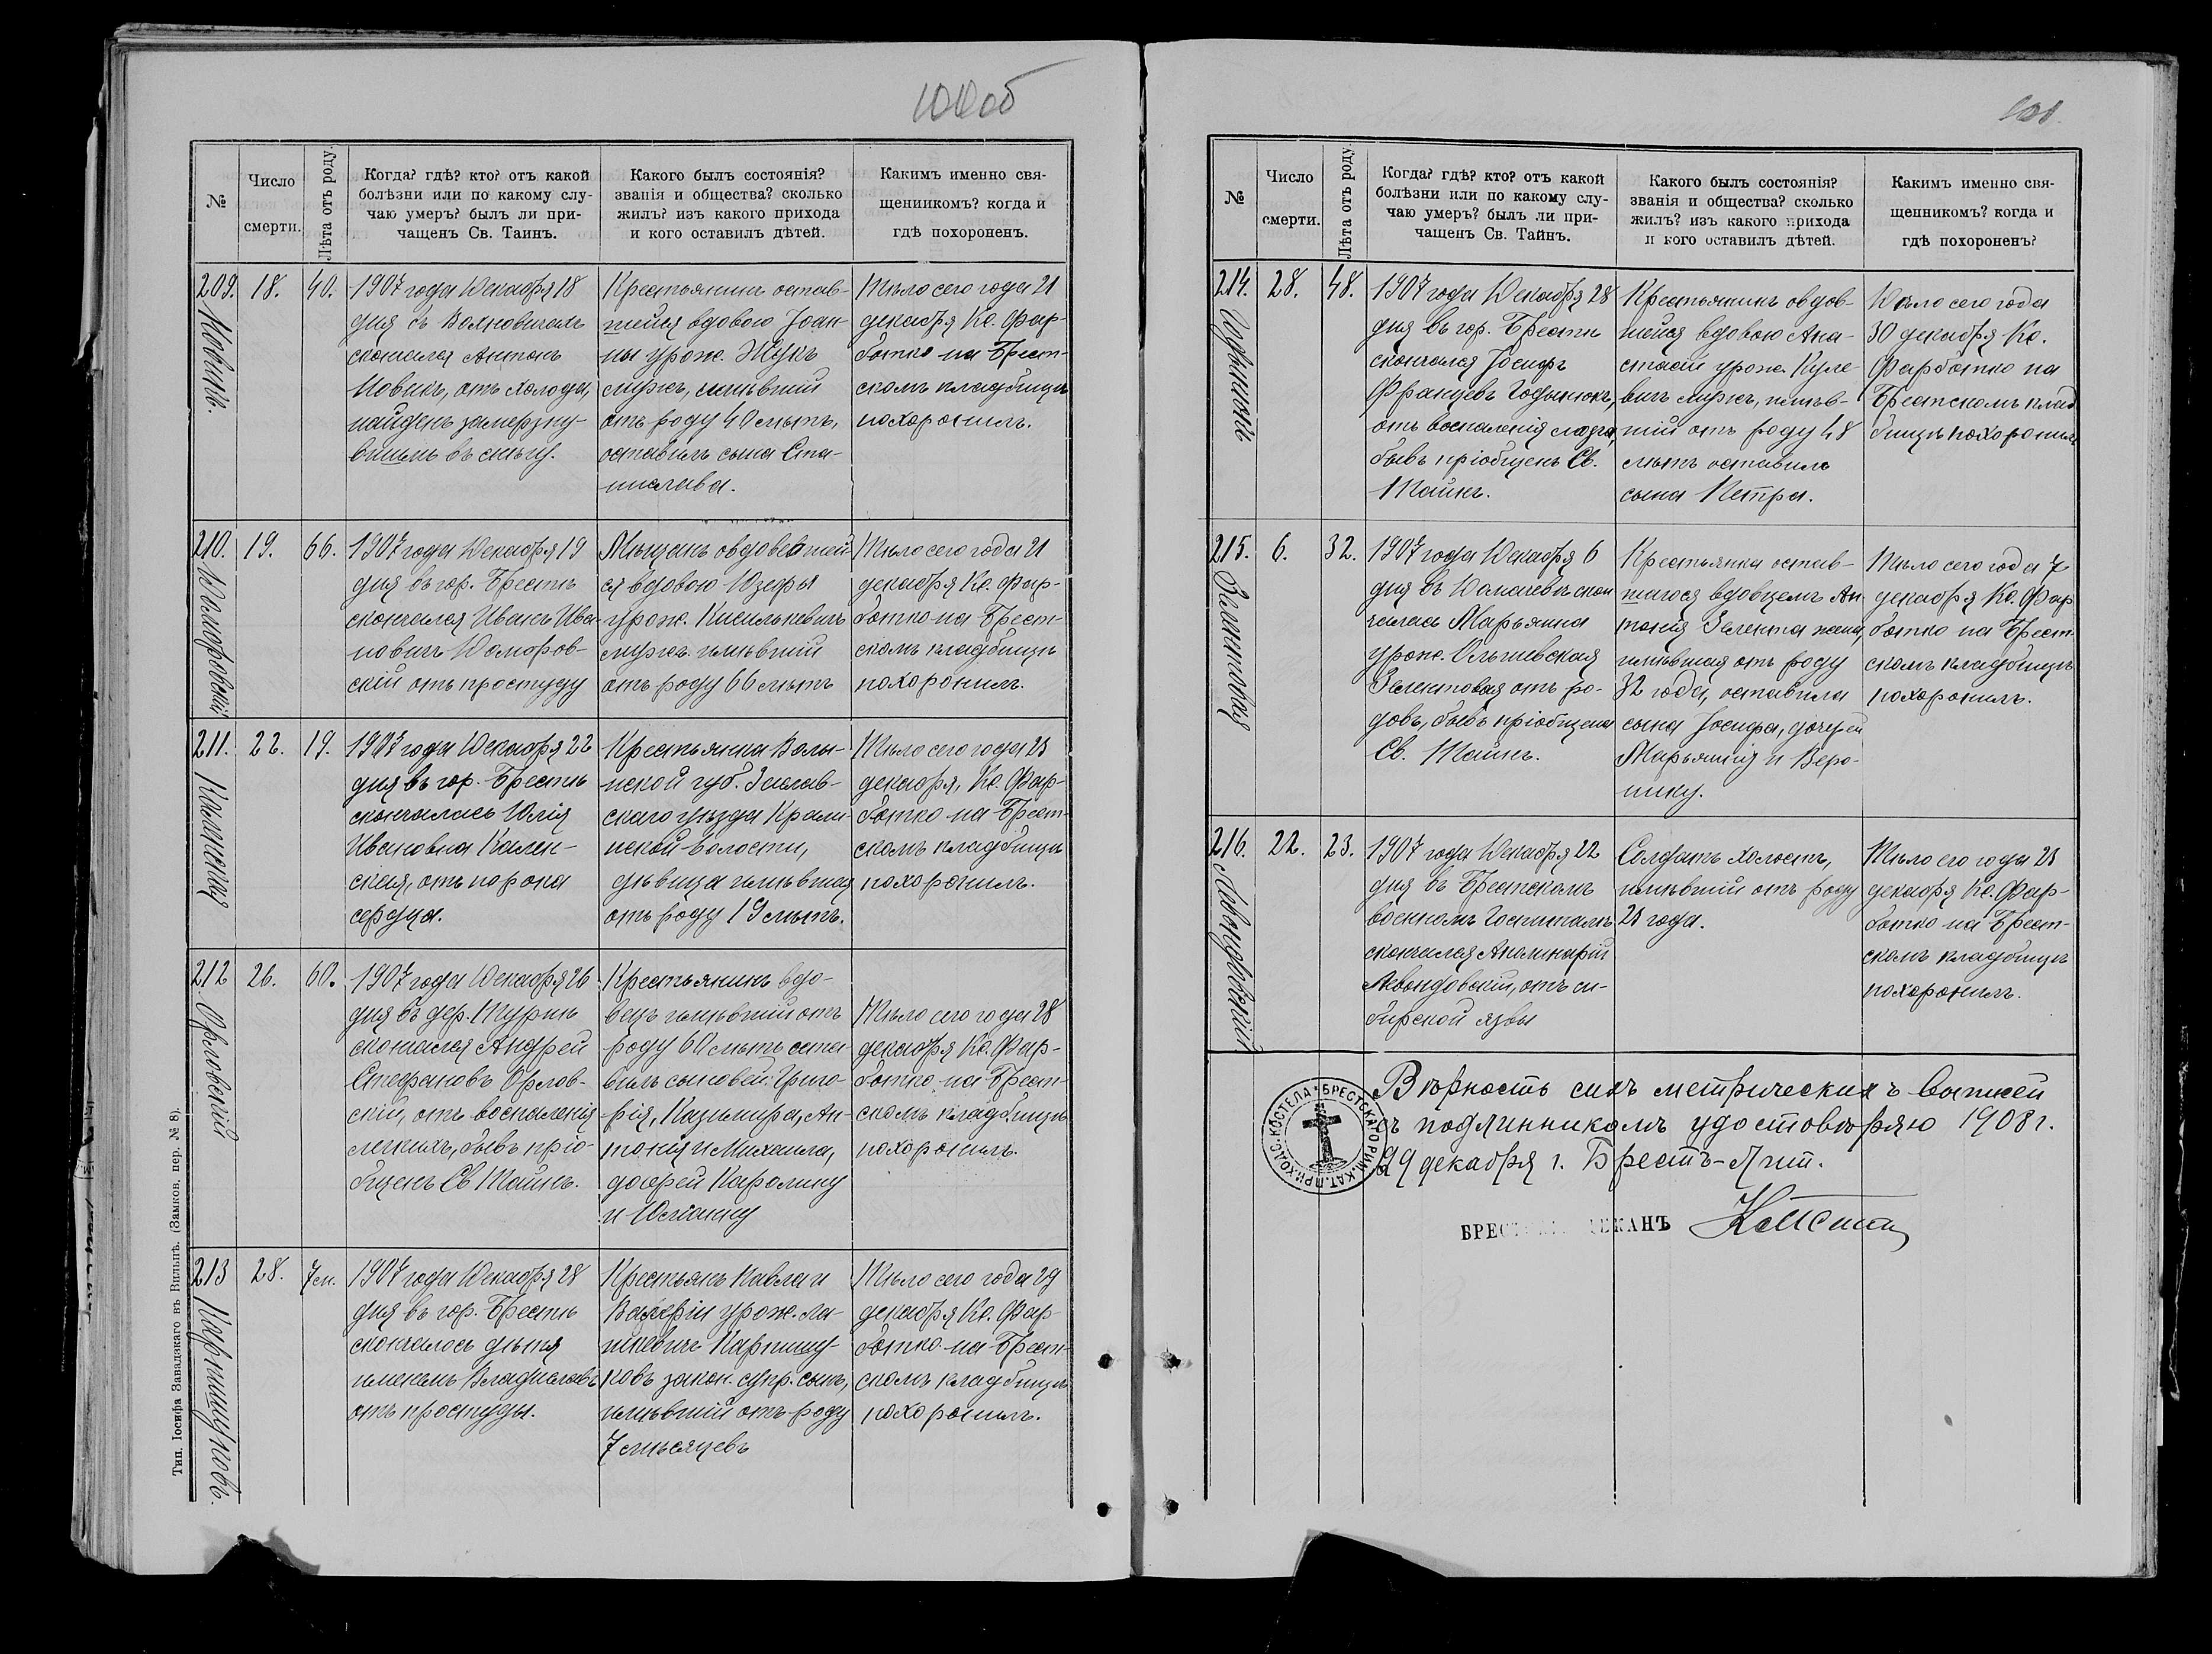 100об
№
Число
смерти.
Лѣта отъ роду.
Когда? гдѣ? кто? отъ какой
болѣзни или по какому слу-
чаю умеръ? былъ ли при-
чащенъ Св. Таинъ.
Какого былъ состоянія?
званія и общества? сколько
жилъ? изъ какого прихода
и кого оставилъ дѣтей.
Какимъ именно свя-
щенникомъ? когда и
гдѣ похороненъ.
209. 18. 40.
Новикъ.
1907 года Декабря 18
дня въ Волновичахъ
скончался Антонъ
Новикъ, отъ холода,
найденъ замерзну-
вшимъ въ снѣгу.
Крестьянинъ остав-
шейся вдовою Іоан-
ны урож. Жукъ
мужъ, имѣвшій
отъ роду 40 лѣтъ,
оставилъ сына Ста-
нислава.
Тѣло сего года 21
декабря Кс. Фар-
ботко на Брест-
скомъ кладбищѣ
похоронилъ.
210. 19. 66.
Доморовскій
1907 года Декабря 19
дня въ гор. Брестѣ
скончался Иванъ Ива-
новичъ Доморов-
скій отъ простуды
Мѣщанъ овдовевшей-
ся вдовою Юзефы
урож. Кисилькевичъ
мужъ имѣвшій
отъ роду 66 лѣтъ
Тѣло сего года 21
декабря Кс. Фар-
ботко на Брест-
скомъ кладбищѣ
похоронилъ.
211. 22. 19.
1907 года Декабря 22
дня въ гор. Брестѣ
скончалась Юлія
Ивановна Кален-
ская, отъ порока
сердца.
Крестьянка Волы-
нской губ. Заслав-
скаго уѣзда
волости,
дѣвица имѣвшая
отъ роду 19 лѣтъ.
Тѣло сего года 23
декабря, Кс. Фар-
ботко на Брест-
скомъ кладбищѣ
похоронилъ.
212 26. 60.
Орловскій
1907 года Декабря 26
дня въ дер. Турнѣ
скончался Андрей
Стефановъ Орлов-
скій, отъ воспаленія
легкихъ, бывъ пріо-
бщенъ Св Тайнъ.
Крестьянинъ вдо-
вецъ имѣвшій отъ
роду 60 лѣтъ оста-
вилъ сыновей: Григо-
рія, Казиміра, Ан-
тонія и Михаила,
дочерей Каролину
и Юліанну
Тѣло сего года 28
декабря Кс. Фар-
ботко на Брест-
скомъ кладбищѣ
похоронилъ.
213 28. 7 м.
Карпишуковъ.
1907 года Декабря 28
дня въ гор. Брестѣ
скончалось дитя
именемъ Владиславъ
отъ простуды.
Крестьянъ Павла и
Валеріи урож. Ла-
шкевичъ Карпишу-
ковъ закон. супр. сынъ,
имѣвшій отъ роду
7 мѣсяцевъ
Тѣло сего года 29
декабря Кс. Фар-
ботко на Брест-
скомъ кладбищѣ
похоронилъ.
Тип. Іосифа Завадзкаго въ Вильнѣ. (Замков. пер. № 8).
101.
№
Число
смерти.
Лѣта отъ роду
Когда? гдѣ? кто? отъ какой
болѣзни или по какому слу-
чаю умеръ? былъ ли при-
чащенъ Св. Тайнъ.
Какого былъ состоянія?
званія и общества? сколько
жилъ? изъ какого прихода
и кого оставилъ дѣтей.
Какимъ именно свя-
щенникомъ? когда и
гдѣ похороненъ?
214. 28. 48.
1907 года Декабря 28
дня въ гор. Брестѣ
скончался Іосифъ
Францевъ Годынюкъ,
отъ воспаленія мозга,
бывъ пріобщенъ Св.
Тайнъ.
Крестьянинъ овдов-
шейся вдовою Ана-
стасіи урож. Куле-
вичъ мужъ, имѣв-
шій отъ роду 48
лѣтъ оставилъ
сына Петра.
Тѣло сего года
30 декабря Кс.
Фарботко на
Брестскомъ клад
бищѣ похоронилъ
215. 6. 32.
1907 года Декабря 6
дня въ Домачевѣ скон
чалась Марьянна
урож. Ольшевская
Зелентовая отъ ро-
довъ, бывъ пріобщена
Св. Тайнъ.
Крестьянка остав-
шагося вдовцемъ Ан-
тонія Зелента жена,
имѣвшая отъ роду
32 года, оставила
сына Іосифа, дочерей
Марьянну и Веро-
нику.
Тѣло сего года 7
декабря Кс. Фар
ботко на Брест-
скомъ кладбищѣ
похоронилъ.
216. 22. 23.
1907 года Декабря 22
дня въ Брестскомъ
военномъ Госпиталѣ
скончался Аполинарій
Левандовскій, отъ си-
бирской язвы
Солдатъ холостъ,
имѣвшій отъ роду
23 года.
Тѣло его года 23
декабря Кс. Фар-
ботко на Брест-
скомъ кладбищѣ
похоронилъ.
Вѣрность сихъ метрическихъ записей
съ подлинникомъ удостовѣряю 1908 г.
29 декабря г. Брестъ-Лит.
БРЕСТСКІЙ ДЕКАНЪ
БРЕСТСКАГО РИМ. КАТ. ПРИХОДС. КОСТЕЛА